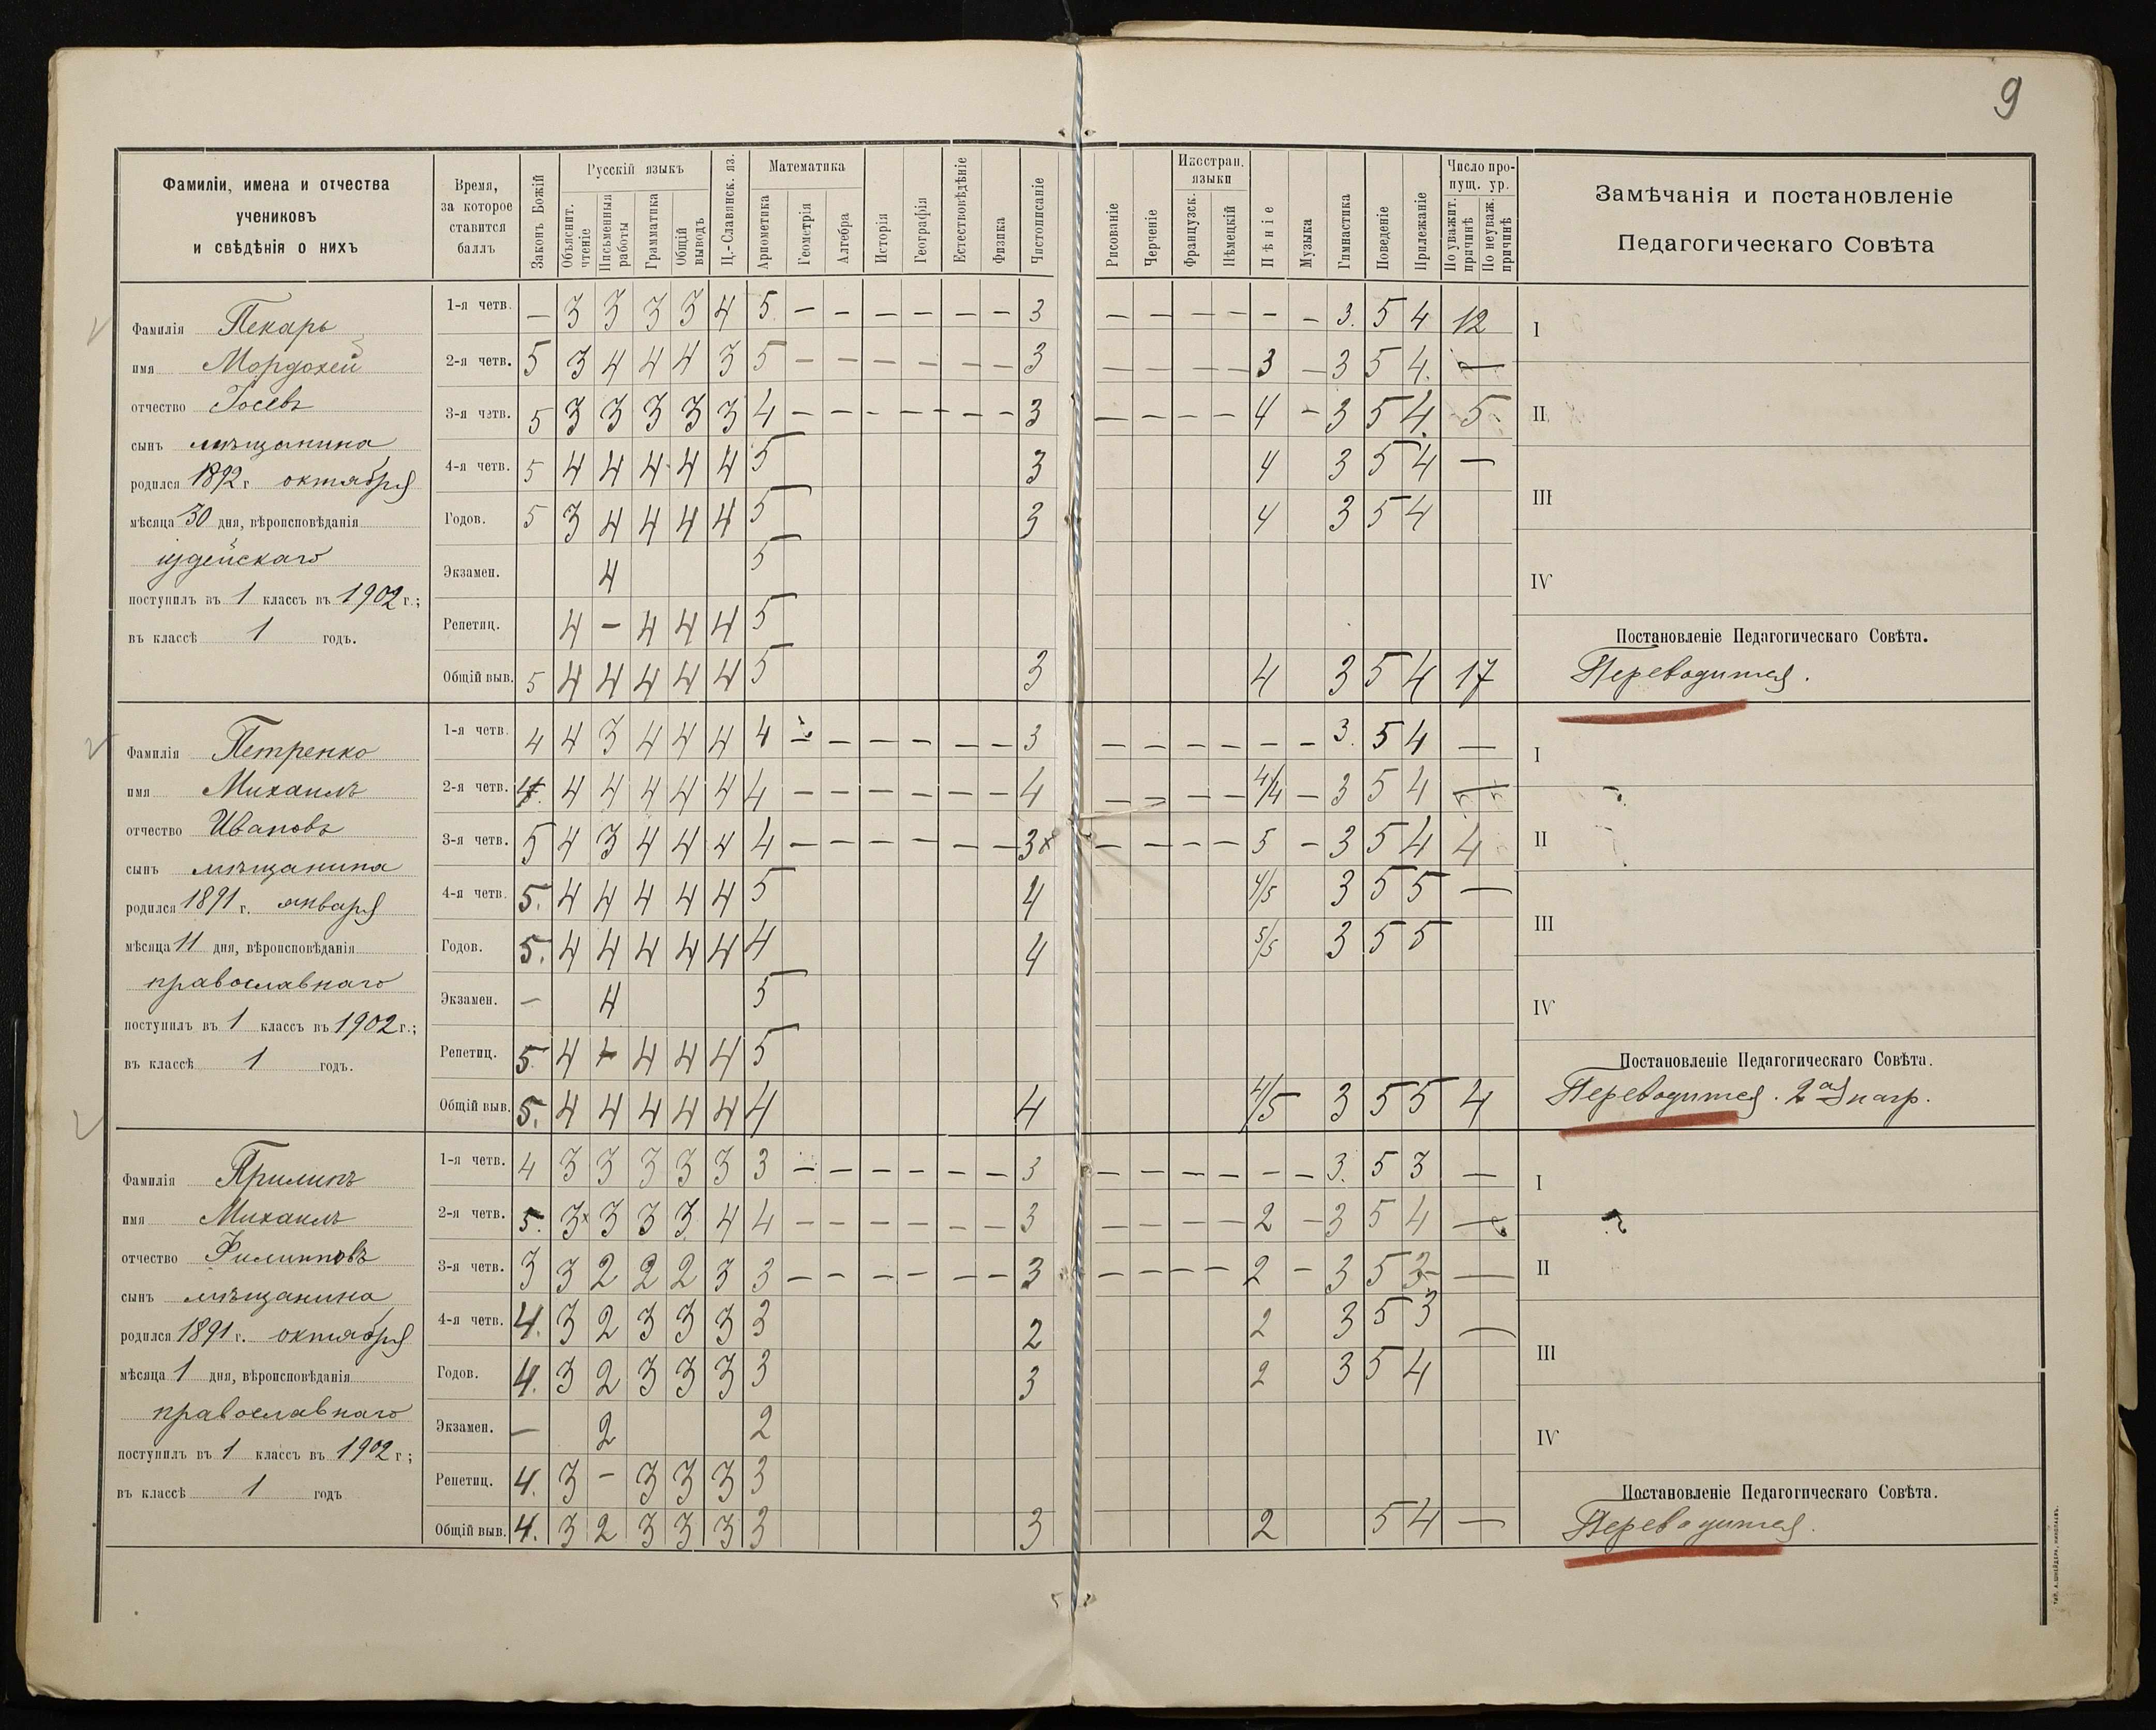 9
Фамиліи, имена и отчества
учениковъ
и свѣдѣнія о нихъ
Время,
за которое
ставится
баллъ
Законъ Божій
Русскій языкъ
Объяснит.
чтеніе
Письменныя
работы
Грамматика
Общій
выводъ
Ц.-Славянск. яз.
Математика
Ариѳметика
Геометрія
Алгебра
Исторія
Географія
Естествовѣдѣніе
Физика
Чистописаніе
Рисованіе
Черченіе
Иностран.
языки
Французск.
Нѣмецкій
Пѣніе
Музыка
Гимнастика
Поведеніе
Прилежаніе
Число про-
пущ. ур.
По уважит.
причинѣ
По неуваж.
причинѣ
Замѣчанія и постановленіе
Педагогическаго Совѣта
Фамилія Пекарь
имя Мордохей
отчество Іосевъ
сынъ мѣщанина
родился 1892 г. октября
мѣсяца 30 дня, вѣроисповѣданія
іудейскаго
поступилъ въ 1 классъ въ 1902 г.;
въ классѣ 1 годъ.
1-я четв. — 3 3 3 3 4 5 — — — — — — 3 — — — — — — 3. 5 4 12
2-я четв. 5 3 4 4 4 3 5 — — — — — — 3 — — — — 3 — 3 5 4. —
3-я четв. 5 3 3 3 3 3 4 — — — — — — 3 — — — — 4 — 3 5 4. 5
4-я четв. 5 4 4 4 4 4 5 3 4 3 5 4 —
Годов. 5 3 4 4 4 4 5 3 4 3 5 4
Экзамен. 4 5
Репетиц. 4 — 4 4 4 5
Общій выв. 5 4 4 4 4 4 5 3 4 3 5 4 17
I
II
III
IV
Постановленіе Педагогическаго Совѣта.
Переводится.
Фамилія Петренко
имя Михаилъ
отчество Ивановъ
сынъ мѣщанина
родился 1891 г. января
мѣсяца 11 дня, вѣроисповѣданія
православнаго
поступилъ въ 1 классъ въ 1902 г.;
въ классѣ 1 годъ.
1-я четв. 4 4 3 4 4 4 4 — — — — — — 3 — — — — — — 3. 5 4 —
2-я четв. 4. 4 4 4 4 4 4 — — — — — — 4 — — — — 4/4 — 3 5 4 —
3-я четв. 5 4 3 4 4 4 4 — — — — — — 3 — — — — 5 — 3 5 4 4
4-я четв. 5. 4 4 4 4 4 5 4 4/5 3 5 5 —
Годов. 5. 4 4 4 4 4 4 4 5/5 3 5 5
Экзамен. — 4 5
Репетиц. 5 4 — 4 4 4 5
Общій выв. 5. 4 4 4 4 4 4 4 4/5 3 5 5 4
I
II
III
IV
Постановленіе Педагогическаго Совѣта.
Переводится. 2ая нагр.
Фамилія Прилипъ
имя Михаилъ
отчество Филипповъ
сынъ мѣщанина
родился 1891 г. октября
мѣсяца 1 дня, вѣроисповѣданія
православнаго
поступилъ въ 1 классъ въ 1902 г;
въ классѣ 1 годъ
1-я четв. 4 3 3 3 3 3 3 — — — — — — 3 — — — — — — 3. 5 3 —
2-я четв. 5. 3 3 3 3 4 4 — — — — — — 3 — — — — 2 — 3 5 4 —
3-я четв. 3 3 2 2 2 3 3 — — — — — — 3 — — — — 2 — 3 5 3 —
4-я четв. 4. 3 2 3 3 3 3 2 2 3 5 3 —
Годов. 4. 3 2 3 3 3 3 3 2 3 5 4
Экзамен. — 2 2
Репетиц. 4. 3 — 3 3 3 3
Общій выв. 4. 3 2 3 3 3 3 3 2 5 4 —
I
II
III
IV
Постановленіе Педагогическаго Совѣта.
Переводится.